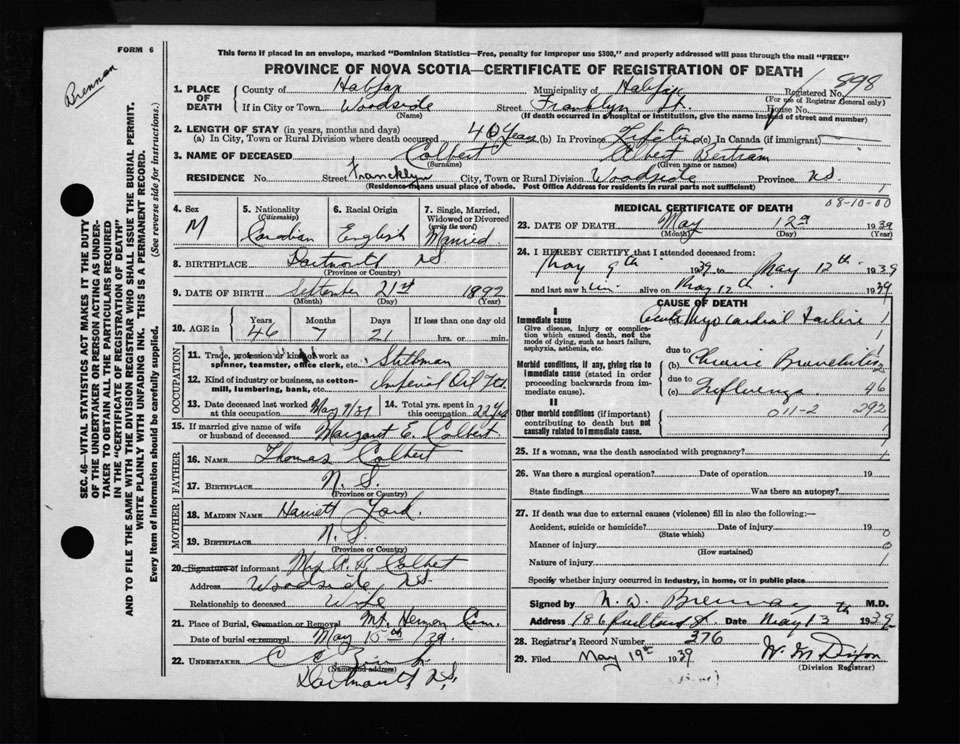 FORM 6
Brennan
This form if placed in an envelope, marked "Dominion Statistics—Free, penalty for improper use $300," and properly addressed will pass through the mail "FREE"
PROVINCE OF NOVA SCOTIA—CERTIFICATE OF REGISTRATION OF DEATH
1. PLACE OF DEATH
County of Halifax Municipality of Halifax Registered No. 898
(For use of Registrar General only)
If in City or Town Woodside Street Franklyn St. House No.
(Name) (If death occurred in a hospital or institution, give the name instead of street and number)
2. LENGTH OF STAY (in years, months and days)
(a) In City, Town or Rural Division where death occurred 40 Years (b) In Province Life (c) In Canada (if immigrant)
3. NAME OF DECEASED Colbert Albert Bertram
(Surname) (Given name or names)
RESIDENCE No. Street Francklyn City, Town or Rural Division Woodside Province N.S.
(Residence means usual place of abode. Post Office Address for residents in rural parts not sufficient) 1
4. Sex M
5. Nationality (Citizenship) Canadian
6. Racial Origin English
7. Single, Married, Widowed or Divorced (write the word) Married
8. BIRTHPLACE Dartmouth N.S.
(Province or Country)
9. DATE OF BIRTH September 21st 1892
(Month) (Day) (Year)
10. AGE in Years 46 Months 7 Days 21 If less than one day old
hrs. or min.
OCCUPATION
11. Trade, profession or kind of work as spinner, teamster, office clerk, etc. Stillman
12. Kind of industry or business, as cotton-mill, lumbering, bank, etc. Imperial Oil Ltd.
13. Date deceased last worked at this occupation May 9/39
14. Total yrs. spent in this occupation 22 yrs
15. If married give name of wife or husband of deceased Margaret E. Colbert
FATHER
16. NAME Thomas Colbert
17. BIRTHPLACE N. S.
(Province or Country)
MOTHER
18. MAIDEN NAME Harriett
19. BIRTHPLACE N. S.
(Province or Country)
20. Signature of informant Mrs A. B. Colbert
Address Woodside, N.S.
Relationship to deceased Wife
21. Place of Burial, Cremation or Removal Mt. Hermon Cem.
Date of burial or removal May 15th /39.
22. UNDERTAKER
(Name and address)
Dartmouth, N.S.
MEDICAL CERTIFICATE OF DEATH 08-10-00
23. DATE OF DEATH May 12th 1939
(Month) (Day) (Year)
24. I HEREBY CERTIFY that I attended deceased from:
May 9th 1939 to May 12th 1939
and last saw him alive on May 12th 1939
CAUSE OF DEATH
I
Immediate cause Acute Myocardial Failure 1
Give disease, injury or complication which caused death, not the mode of dying, such as heart failure, asphyxia, asthenia, etc.
Morbid conditions, if any, giving rise to immediate cause (stated in order proceeding backwards from immediate cause).
due to
(b) Chronic Bronchitis
due to
(c) Influenza 46
II
Other morbid conditions (if important) contributing to death but not causally related to immediate cause.
011-2 292
25. If a woman, was the death associated with pregnancy? 1
26. Was there a surgical operation? Date of operation 19
State findings Was there an autopsy?
27. If death was due to external causes (violence) fill in also the following:—
Accident, suicide or homicide? Date of injury 19 0
(State which)
Manner of injury 0
(How sustained)
Nature of injury 1
Specify whether injury occurred in industry, in home, or in public place
Signed by N. D. Brennan M.D.
186 Portland St. Date May 13th 1939
28. Registrar's Record Number 376
29. Filed May 19th 1939 W. M. Dixon
(Division Registrar)
SEC. 46—VITAL STATISTICS ACT MAKES IT THE DUTY
OF THE UNDERTAKER OR PERSON ACTING AS UNDER-
TAKER TO OBTAIN ALL THE PARTICULARS REQUIRED
IN THE "CERTIFICATE OF REGISTRATION OF DEATH"
AND TO FILE THE SAME WITH THE DIVISION REGISTRAR WHO SHALL ISSUE THE BURIAL PERMIT.
WRITE PLAINLY WITH UNFADING INK. THIS IS A PERMANENT RECORD.
Every item of information should be carefully supplied. (See reverse side for instructions.)